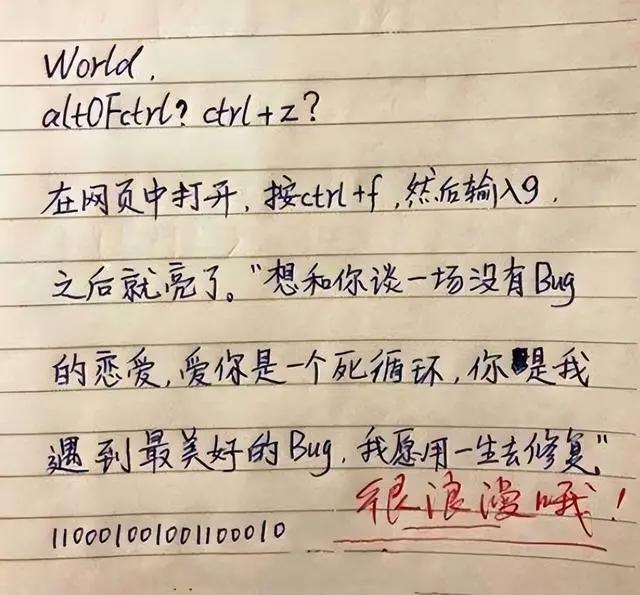 World,
alt0Fctrl? ctrl+z?
在网页中打开，按ctrl+f，然后输入g，
之后就亮了。"想和你谈一场没有Bug
的恋爱，爱你是一个死循环，你是我
遇到最美好的Bug，我愿用一生去修复"
很浪漫哦！
11000100100110001​0